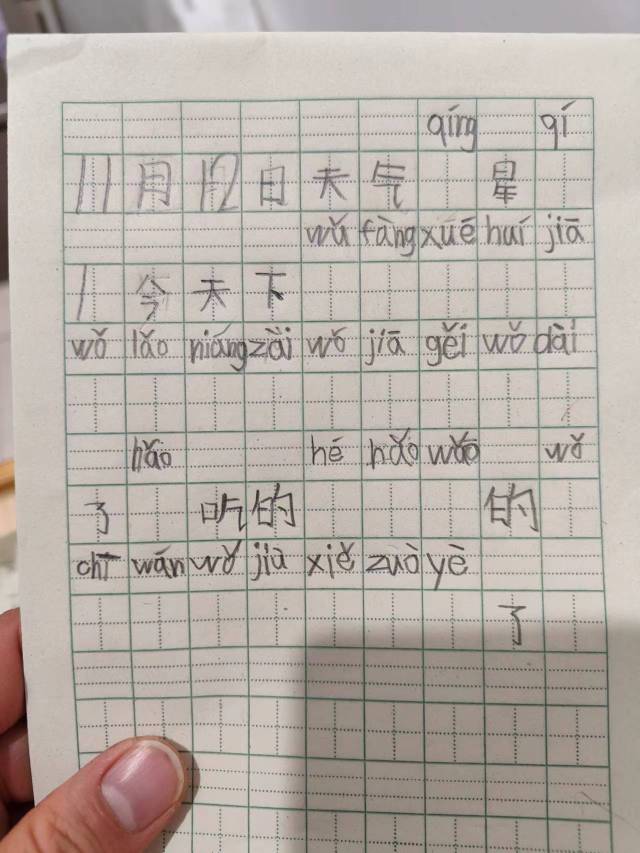 qíng qí
11月12日天气 星
wǔ fàng xué huí jiā
1 今天下
wǒ lǎo niáng zài wǒ jiā gěi wǒ dài
hǎo hé hǎo wán wǒ
了 吃的 的
chī wán wǒ jiù xiě zuò yè
了